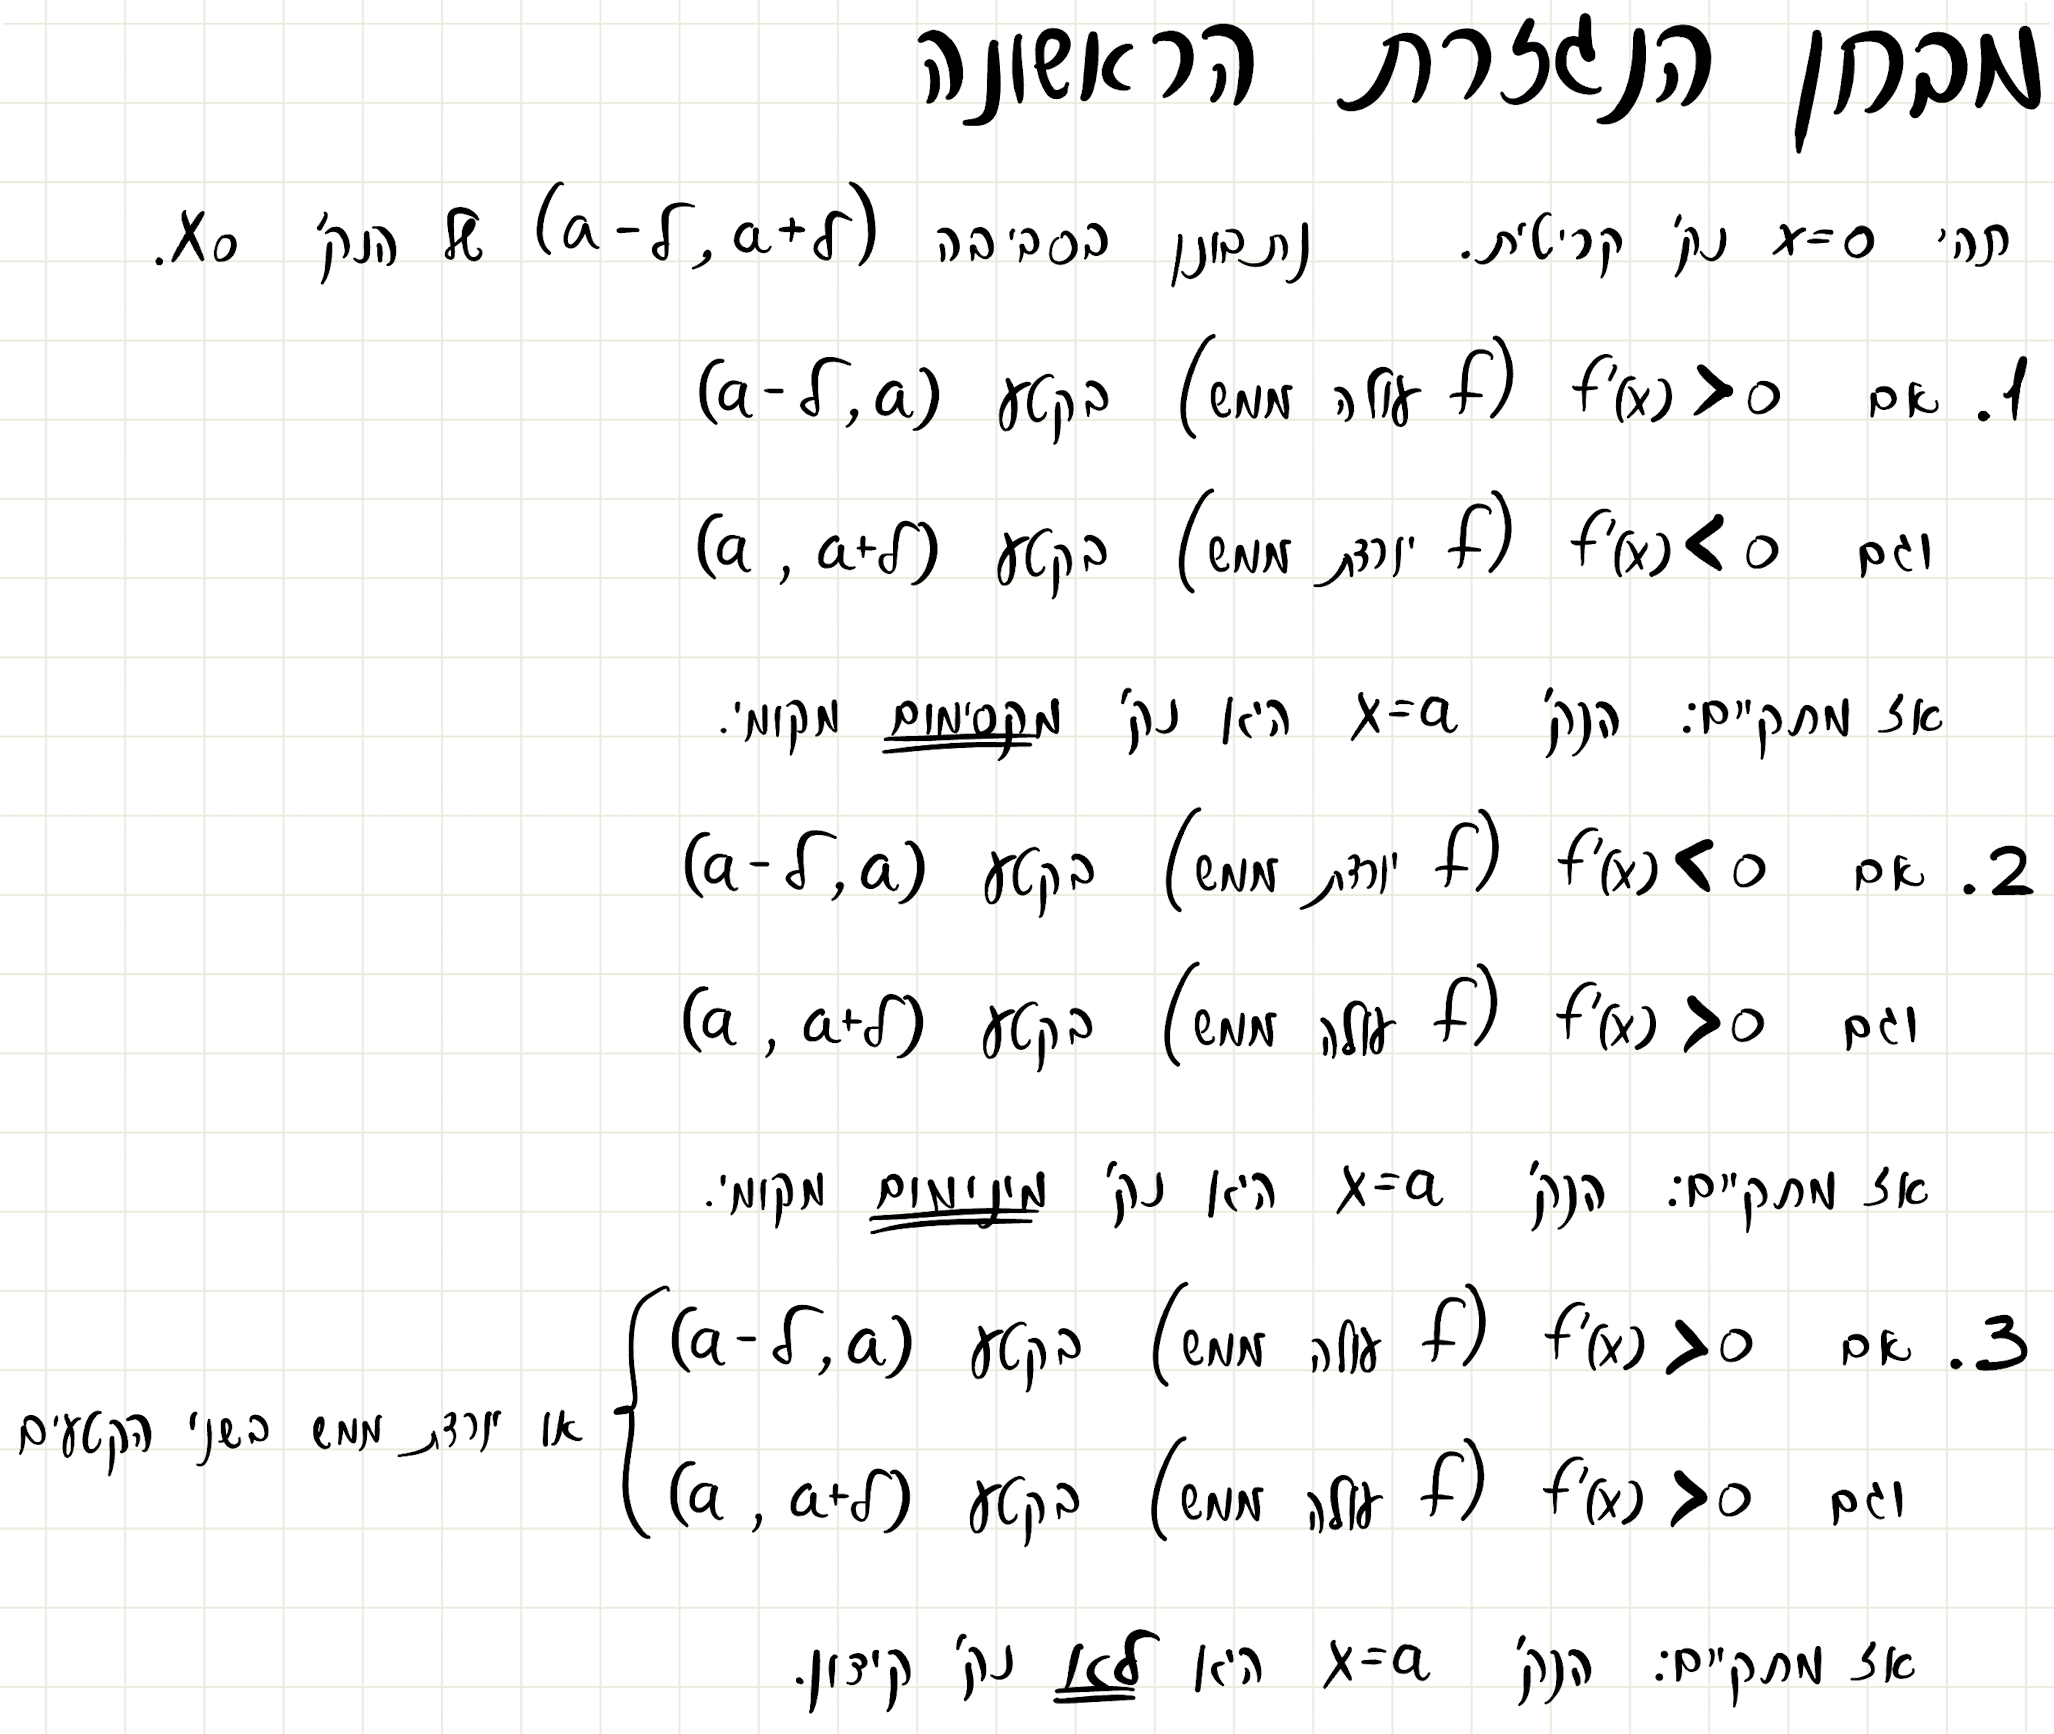 מבחן הנגזרת הראשונה
תהי x=0 נק' קריטית. נתבונן בסביבה (a-δ, a+δ) של הנק' x₀.
1. אם f'(x)>0 (f עולה ממש) בקטע (a-δ, a)
וגם f'(x)<0 (f יורדת ממש) בקטע (a, a+δ)
אז מתקיים: הנק' x=a היא נק' מקסימום מקומי.
2. אם f'(x)<0 (f יורדת ממש) בקטע (a-δ, a)
וגם f'(x)>0 (f עולה ממש) בקטע (a, a+δ)
אז מתקיים: הנק' x=a היא נק' מינימום מקומי.
3. אם f'(x)>0 (f עולה ממש) בקטע (a-δ, a)
וגם f'(x)>0 (f עולה ממש) בקטע (a, a+δ)
או יורדת ממש בשני הקטעים
אז מתקיים: הנק' x=a היא לא נק' קיצון.